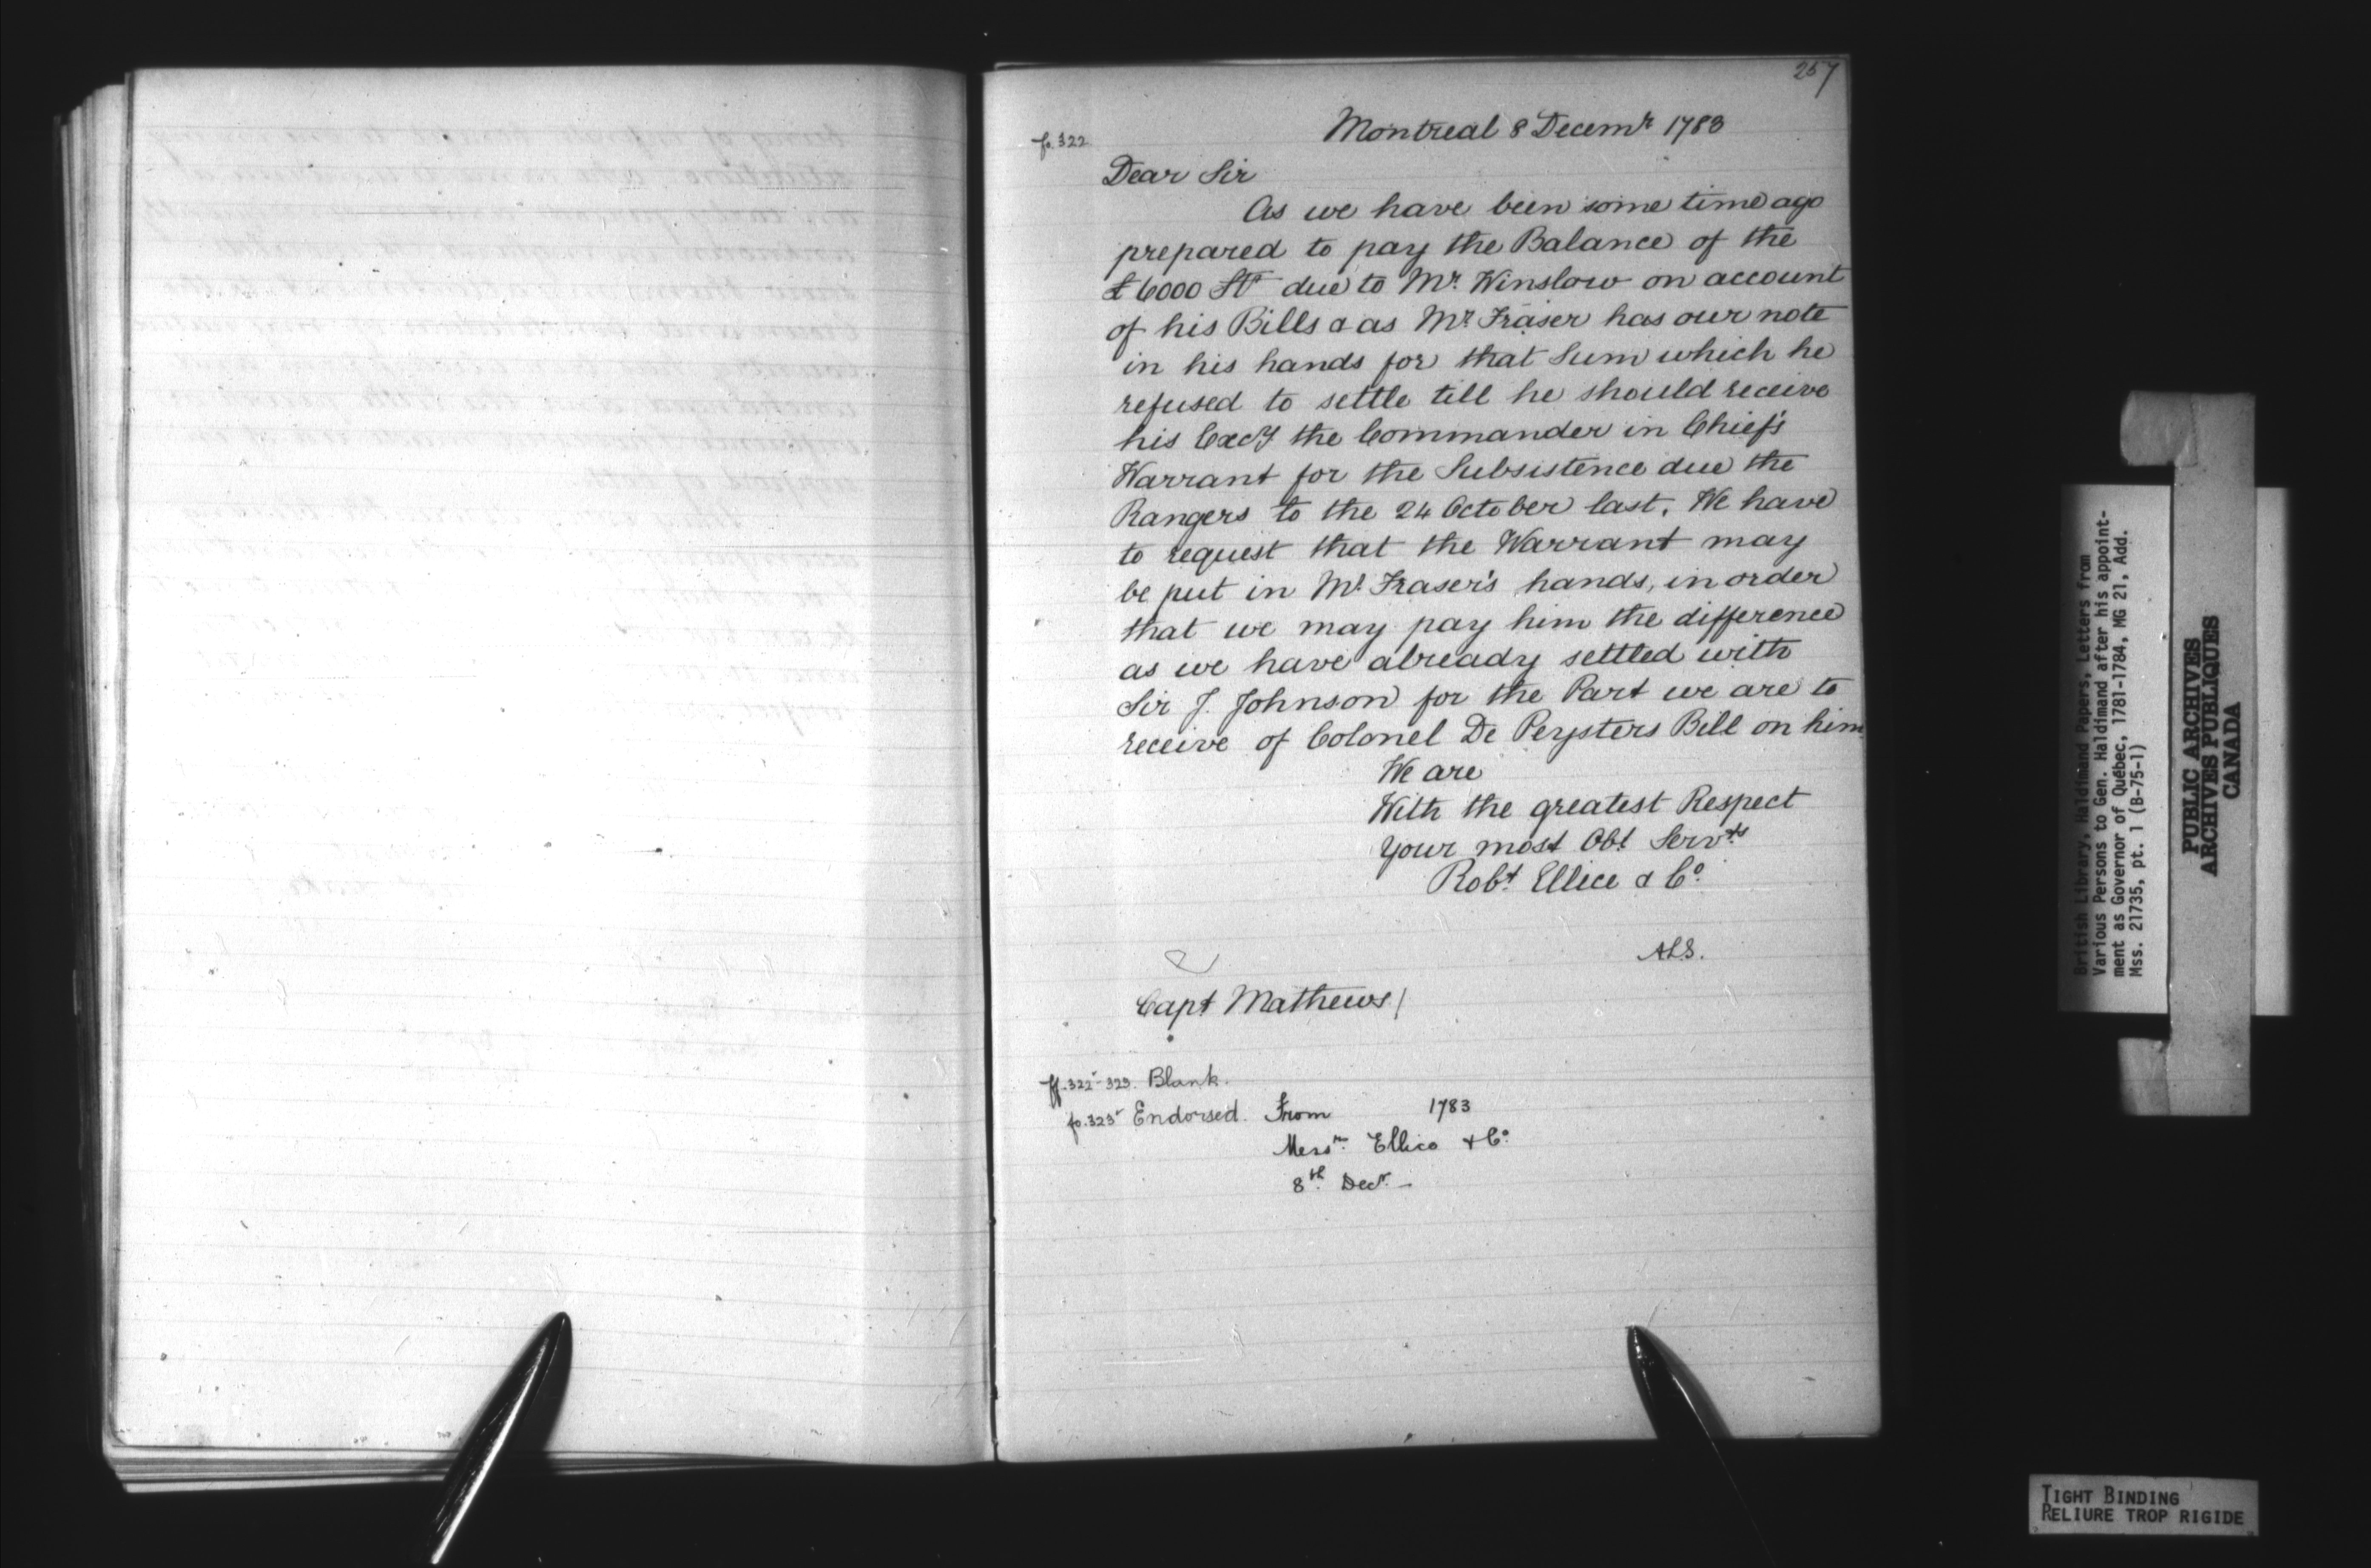 257
fo. 322
Montreal 8 Decemr 1783
Dear Sir
As we have been some time ago
prepared to pay the Balance of the
£6000 Stg due to Mr. Winslow on account
of his Bills & as Mr. Fraser has our note
in his hands for that Sum which he
refused to settle till he should receive
his Excy the Commander in Chief's
Warrant for the Subsistence due the
Rangers to the 24 October last. We have
to request that the Warrant may
be put in Mr. Fraser's hands, in order
that we may pay him the difference
as we have already settled with
Sir J. Johnson for the Part we are to
receive of Colonel De Peysters Bill on him
We are
With the greatest Respect
Your most Obt Servts
Robt. Ellice & Co.
ALS.
Capt Mathews/
ff. 322v-323. Blank.
fo. 323v Endorsed. From 1783
Messrs. Ellice & Co.
8th. Decr. –
British Library, Haldimand Papers, Letters from
Various Persons to Gen. Haldimand after his appoint-
ment as Governor of Québec, 1781-1784, MG 21, Add.
Mss. 21735, pt. 1 (B-75-1)
PUBLIC ARCHIVES
ARCHIVES PUBLIQUES
CANADA
TIGHT BINDING
RELIURE TROP RIGIDE